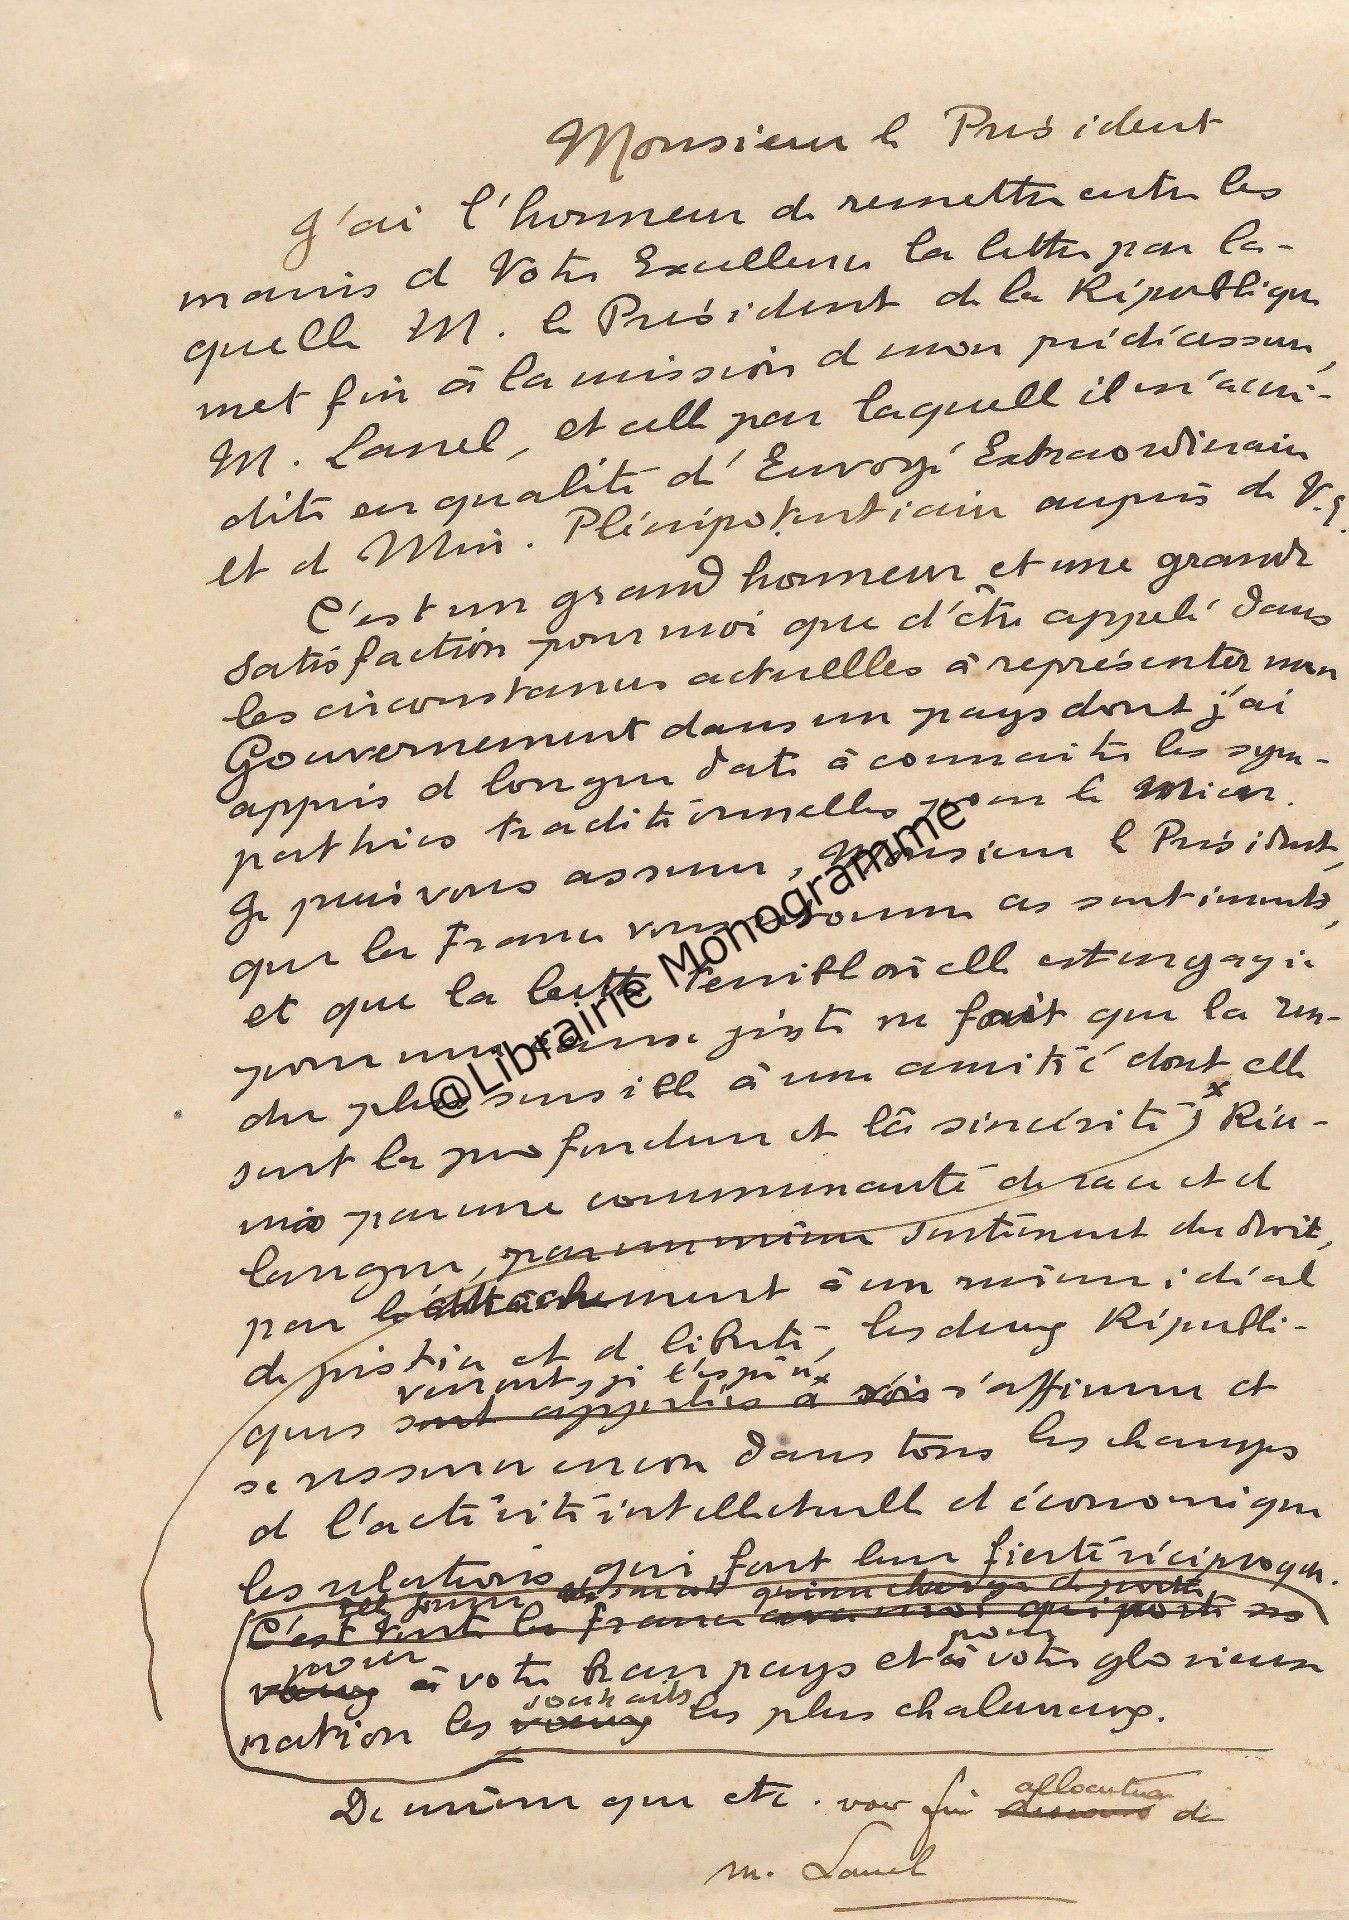 Monsieur le Président
J'ai l'honneur de remettre entre les
mains de Votre Excellence la lettre par la-
quelle M. le Président de la République
met fin à la mission de mon prédécesseur,
M. Lanel, et celle par laquelle il m'accré-
dite en qualité d'Envoyé Extraordinaire
et de Min. Plénipotentiaire auprès de V.E.
C'est un grand honneur et une grande
satisfaction pour moi que d'être appelé dans
les circonstances actuelles à représenter mon
Gouvernement dans un pays dont j'ai
appris de longue date à connaître les sym-
pathies traditionnelles pour le mien.
Je puis vous assurer, Monsieur le Président,
que la France vous ces sentiments,
et que la lutte terrible où elle est engagée
pour une cause juste ne fait que la ren-
dre plus sensible à une amitié dont elle
sent la profondeur et la sincérité x Réu-
nies par une communauté de race et de
langue, par un même sentiment du droit,
par l'attachement à un même idéal
de justice et de liberté, les deux Républi-
verront, je l'espère x
ques sont appelées à s'affirmer et
se resserrer encore dans tous les champs
de l'activité intellectuelle et économique
les relations qui font leur fierté réciproque.
C'est toute la France qui porte
pour pour
vœux à votre beau pays et à votre glorieuse
souhaits
nation les vœux les plus chaleureux.
De même que etc. voir fin allocution discours de
M. Lanel
@Librairie Monogramme